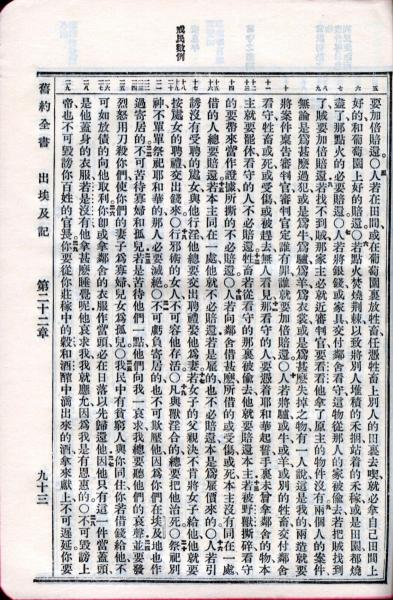 戒民數例
要加倍賠還○人若在田間或在葡萄園裏放牲畜任憑牲畜上別人的田裏去喫就必拿自己田間上
好的和葡萄園上好的賠還○若點火焚燒荊棘以致將別人堆積的禾捆站着的禾稼或是田園都燒
盡了那點火的必要賠還○人若將銀錢或家具交付鄰舍看守這物從那人的家被偷去若把賊找到
了賊要加倍賠還若找不到賊那家主必就近審判官要看看他拿了原主的物件沒有兩個人的案件
無論是爲甚麽過犯或是爲牛爲驢爲羊爲衣裳或是爲甚麽失掉之物有一人說這是我的兩造就要
將案件稟告審判官審判官定誰有罪誰就要加倍賠還○人若將驢或牛或羊或別的牲畜交付鄰舍
看守牲畜或死或受傷或被趕去無人看見那看守的人要憑着耶和華起誓手裏未曾拿鄰舍的物本
主就要罷休看守的人不必賠還牲畜若從看守的那裏被偷去他就要賠還本主若被野獸撕碎看守
的要帶來當作證據所撕的不必賠還○人若向鄰舍借甚麽所借的或受傷或死本主沒有同在一處
借的人總要賠還若本主同在一處他就不必賠還若是雇的也不必賠還本是爲雇價來的○人若引
誘沒有受聘的處女與他行淫他總要交出聘禮娶他爲妻若女子的父親決不肯將女子給他他就要
按處女的聘禮交出錢來○行邪術的女人不可容他存活○凡與獸淫合的總要把他治死○祭祀別
神不單單祭祀耶和華的那人必要滅絕○不可虧負寄居的也不可欺壓他因爲你們在埃及地也作
過寄居的不可苦待寡婦和孤兒若是苦待他們一點他們向我一哀求我總要聽他們的哀聲並要發
烈怒用刀殺你們使你們的妻子爲寡婦兒女爲孤兒○我民中有貧窮人與你同住你若借錢給他不
可如放債的向他取利你卽或拿鄰舍的衣服作當頭必在日落以先歸還他因他只有這一件當蓋頭
是他蓋身的衣服若是沒有他拿甚麽睡覺呢他哀求我我就應允因爲我是有恩惠的○不可毁謗上
帝也不可毁謗你百姓的官長你要從你莊稼中的穀和酒醡中滴出來的酒拿來獻上不可遲延你要
舊約全書 出埃及記 第二十二章 九十三